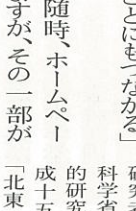 ことにもつながる」
随時、ホームペー
すが、その一部が
科学省
的研究
成十五
「北東